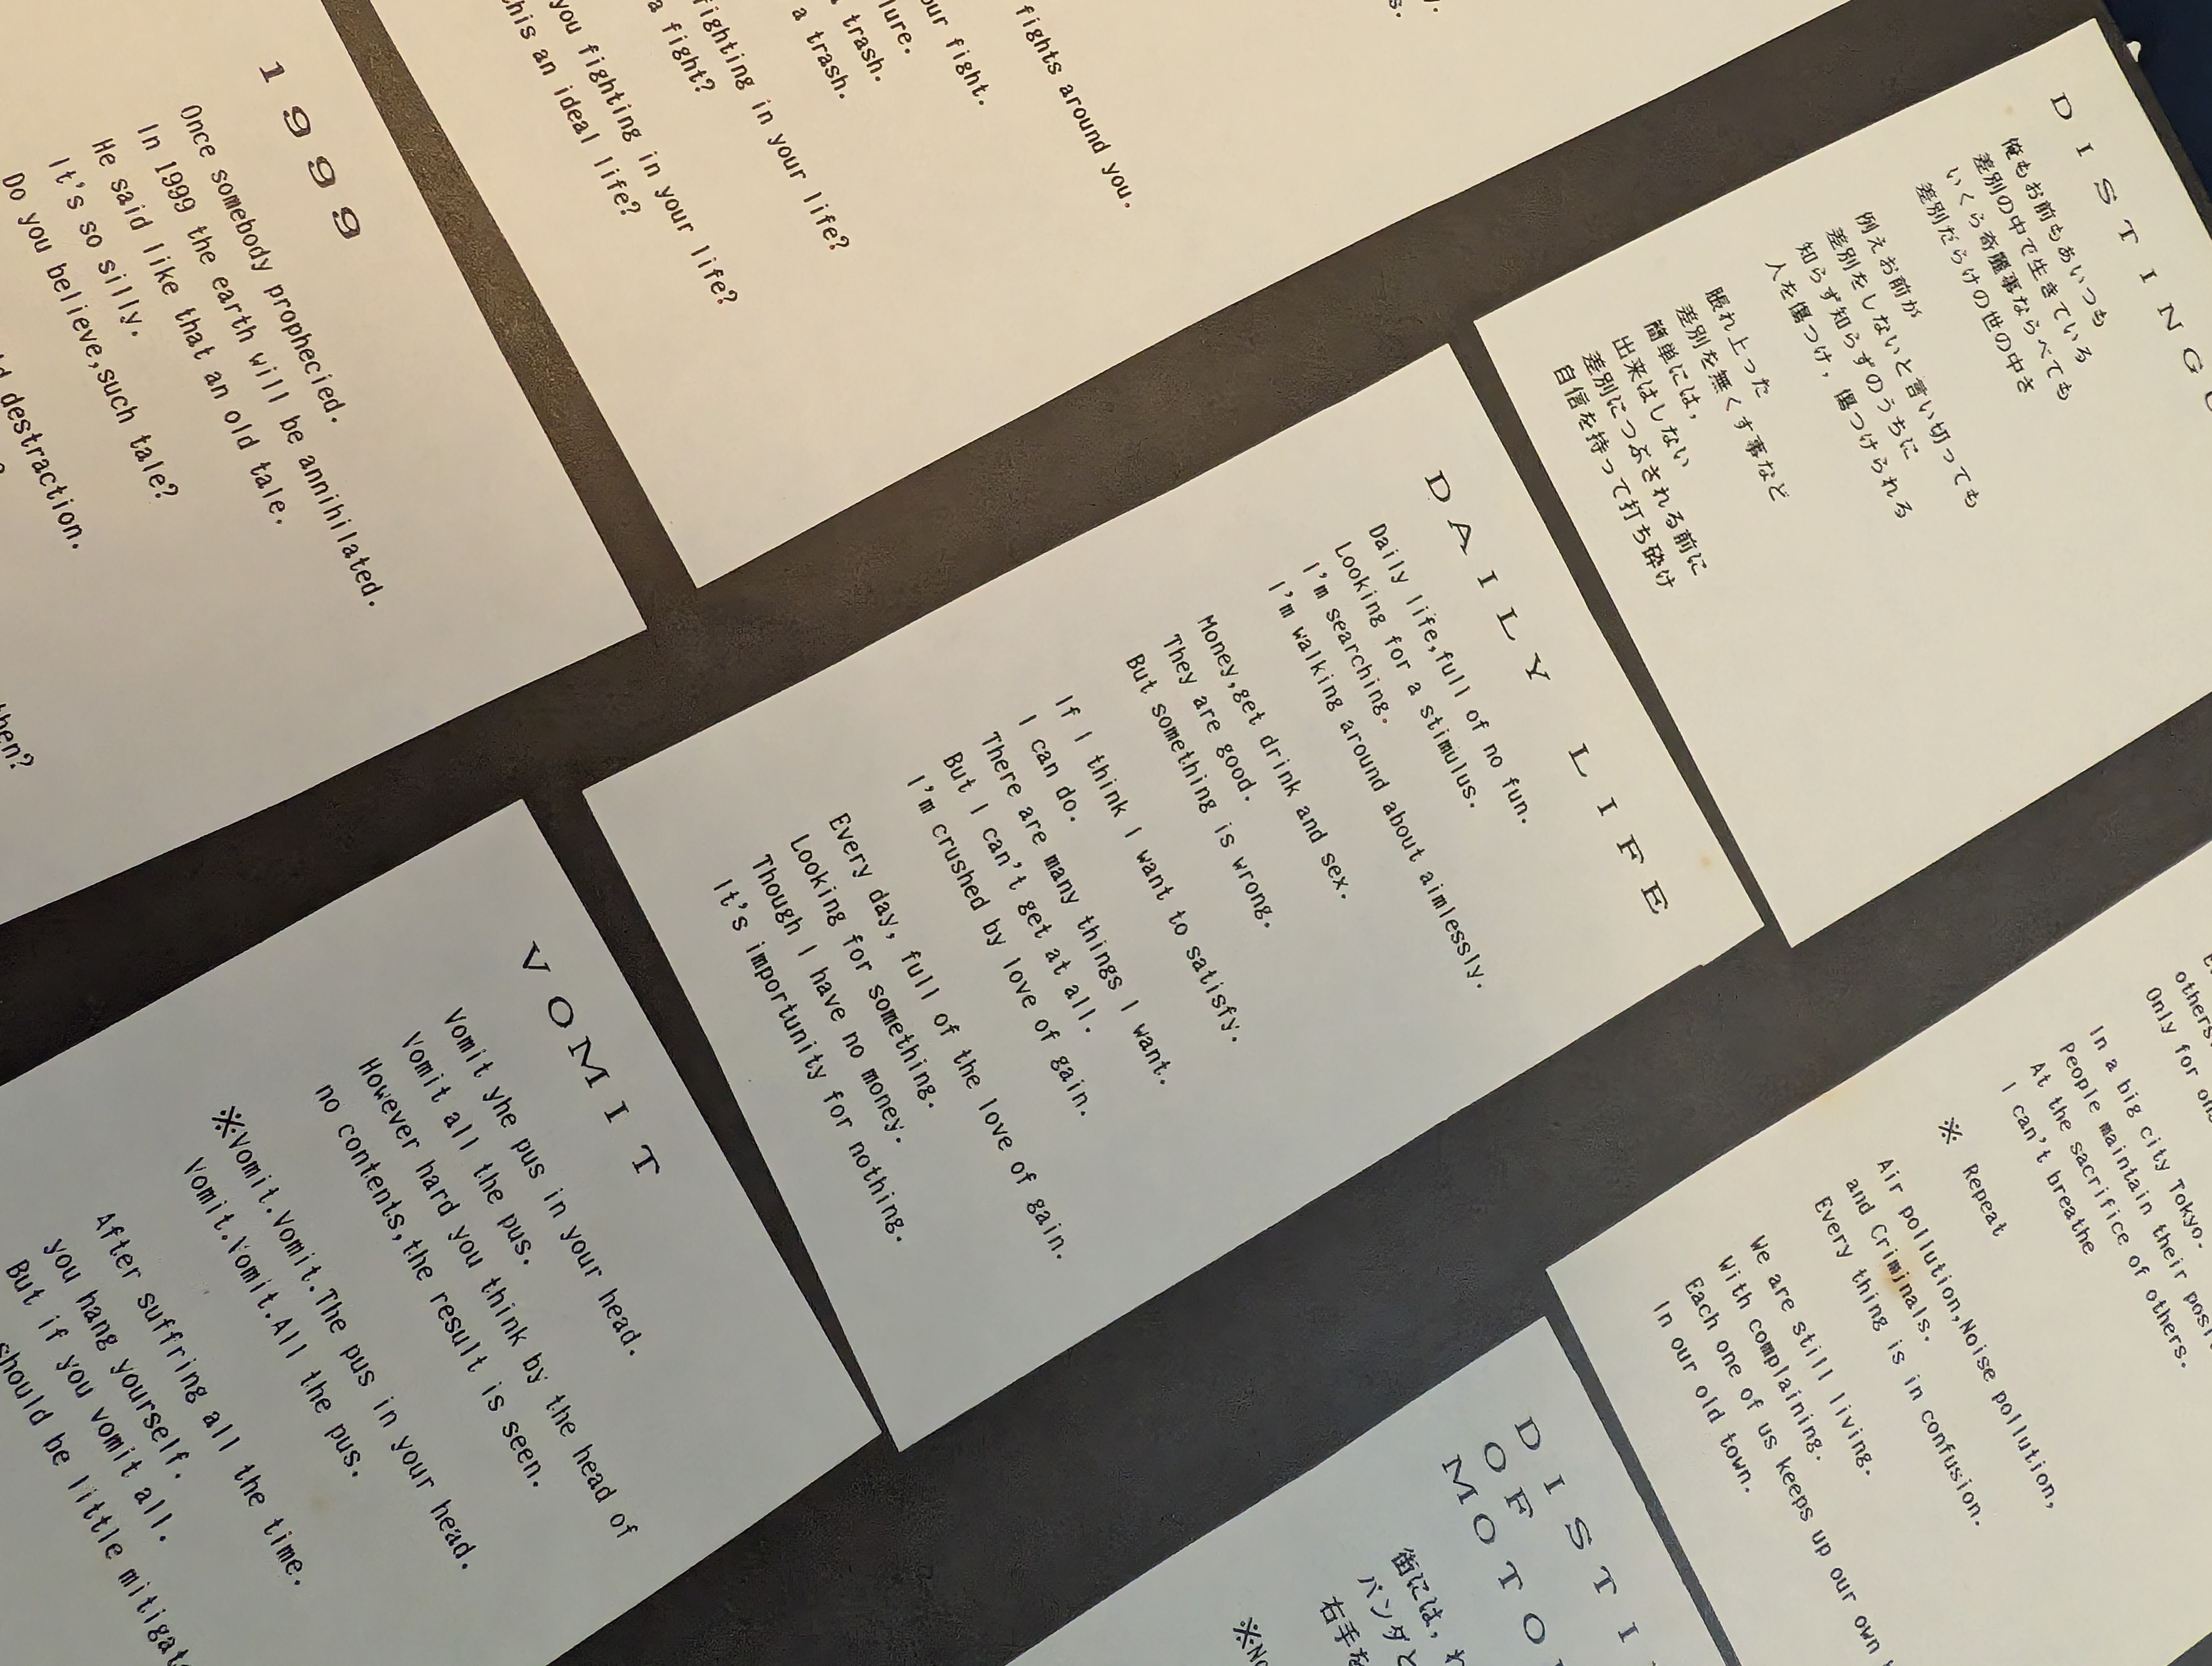 1999
Once somebody prophecied.
In 1999 the earth will be annihilated.
He said like that an old tale.
It's so silly.
Do you believe,such tale?
destraction.
then?
fights around you.
our fight.
lure.
trash.
a trash.
a fight?
fighting in your life?
you fighting in your life?
this an ideal life?
DISTING
俺もお前もあいつも
差別の中で生きている
いくら奇麗事ならべても
差別だらけの世の中さ
例えお前が
差別をしないと言い切っても
知らず知らずのうちに
人を傷つけ,傷つけられる
脹れ上った
差別を無くす事など
簡単には,
出来はしない
差別につぶされる前に
自信を持って打ち砕け
DAILY LIFE
Daily life,full of no fun.
Looking for a stimulus.
I'm searching.
I'm walking around about aimlessly.
Money,get drink and sex.
They are good.
But something is wrong.
If I think I want to satisfy.
I can do.
There are many things I want.
But I can't get at all.
I'm crushed by love of gain.
Every day, full of the love of gain.
Looking for something.
Though I have no money.
It's importunity for nothing.
VOMIT
Vomit yhe pus in your head.
Vomit all the pus.
However hard you think by the head of
no contents,the result is seen.
※Vomit.Vomit.The pus in your head.
Vomit.Vomit.All the pus.
After suffring all the time.
you hang yourself.
But if you vomit all.
should be little mitigat
others.
Only for
In a big city Tokyo.
People maintain their
At the sacrifice of others.
I can't breathe
※ Repeat
Air pollution,Noise pollution,
and Criminals.
Every thing is in confusion.
We are still living.
With complaining.
Each one of us keeps up our own
In our old town.
DISTI
OF
MOTO
街には,
パンダと
右手を